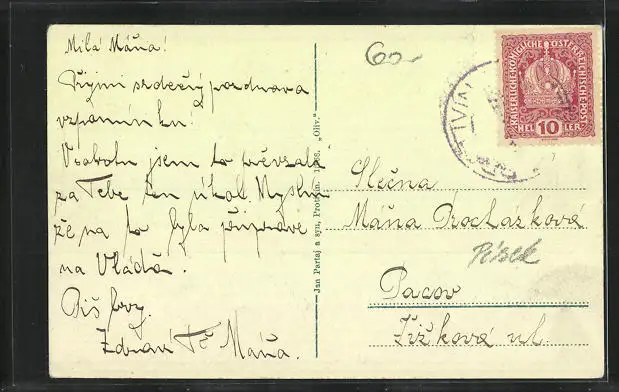 Milá Máňa!
Přijmi srdečný pozdrav a
vzpomínku!
V sobotu jsem to převzala
za Tebe ten úkol. Myslím
že na to byla připravě
na Vláďa.
Piš brzy.
Zdraví Tě Máňa.
Jan Partaj a syn, Protivín. „Oliv.“
60.-
KAISERLICHE KÖNIGLICHE ÖSTERREICHISCHE POST
HELLER 10
TIVÍN
Slečna
Máňa Procházková
Písek
Pacov
Žižková ul.